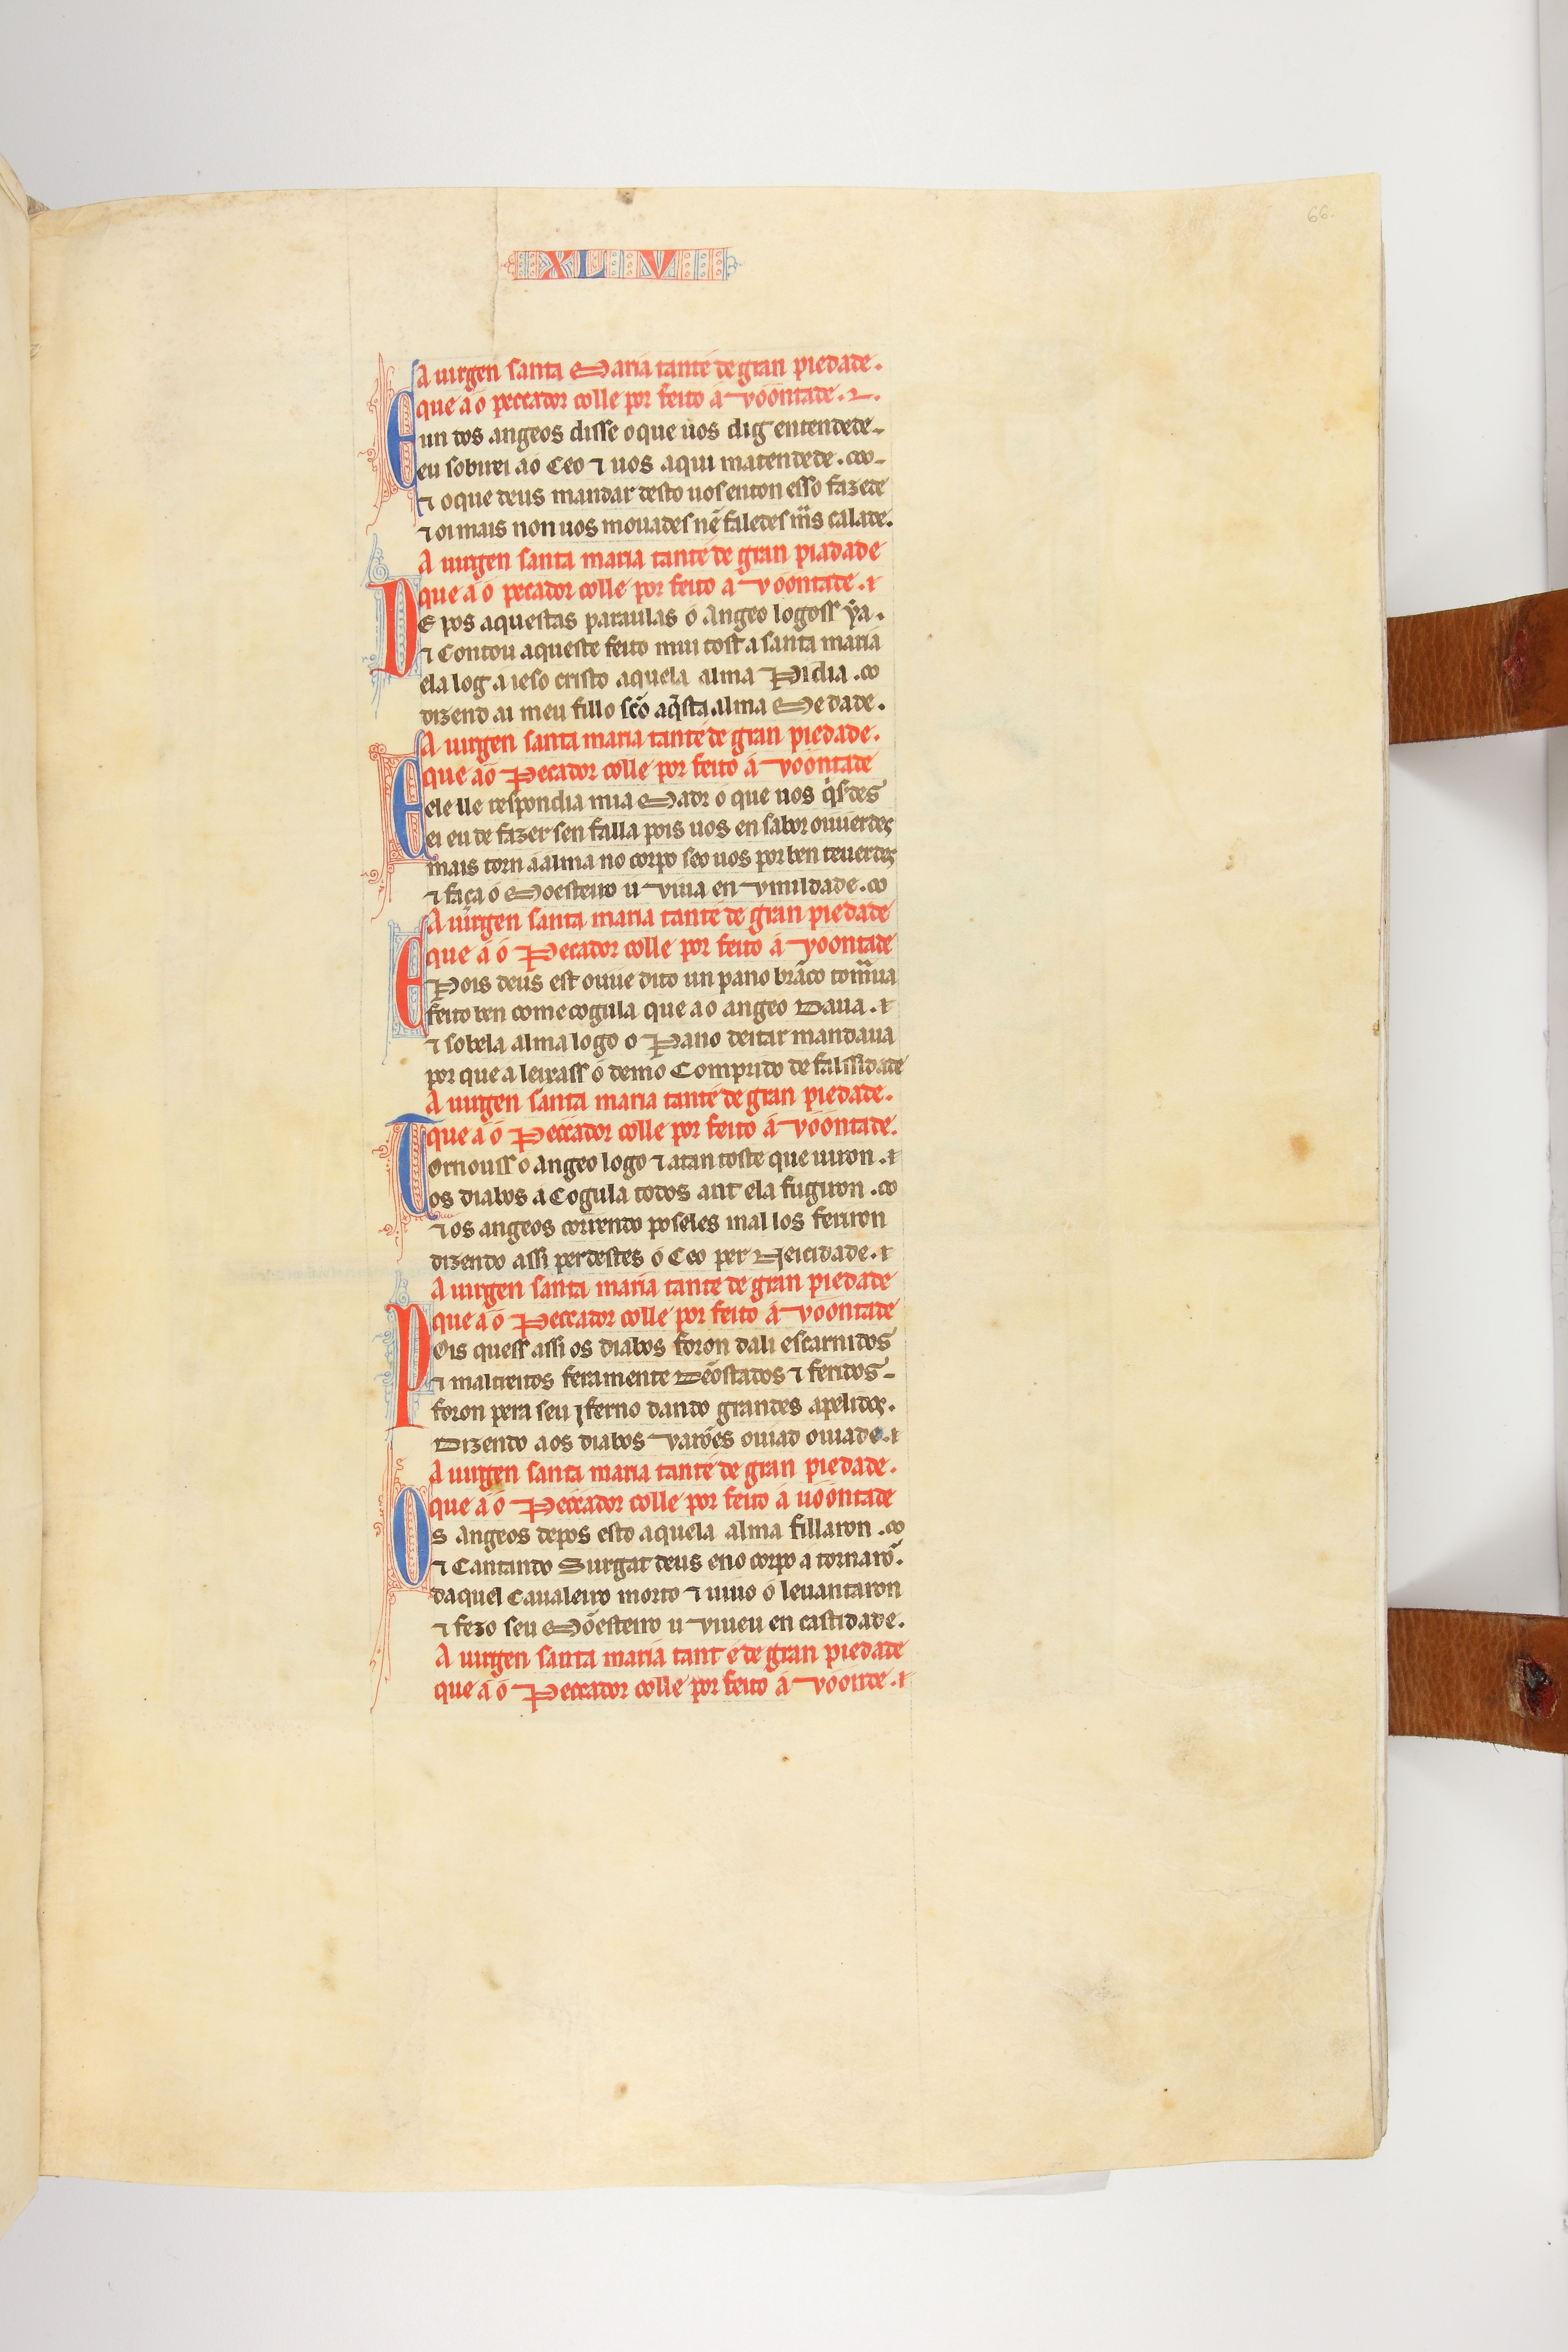 66.
XLV
A uirgen santa Maria tanté de gran piedade.
que a o peccador colle por feito á uoontade. 
E un dos angeos disse o que uos dig entendede
eu sobirei ao Ceo ⁊ uos aqui matendede.
⁊ o que deus mandar desto uos enton esso fazede
⁊ oi mais non uos mouades nẽ faledes mas calade.
A uirgen santa maria tanté de gran piadade
que a o pecador colle por feito a uoontade.
DE pos aquestas paraulas o angeo logoss ẏa.
⁊ Contou aqueste feito mui tost a santa maria
ela log a ieso cristo aquela alma Pidia.
dizend ai meu fillo sc̃o aq̃sta alma Me dade.
A uirgen santa maria tanté de gran piedade.
que ao Pecador colle por feito á uoontade
Eele lle respondia mia Madr o que uos q̇sℓdes
ei eu de fazer sen falla pois uos en sabor ouuerdes
mais torn a alma no corpo seo uos por ben teuerdes
⁊ faça o Moesteiro u uiua en vmildade.
A uirgen santa maria tanté de gran piedade
que a o Pecador colle por feito á uoontade
E Pois deus est ouue dito un pano brãco tomaua
feito ben come cogula que ao angeo Daua.
⁊ sobela alma logo o Pano deitar mandaua
por que a leixass o demo Comprido de falssidade
A uirgen santa maria tanté de gran piedade.
que a o Peccador colle por feito á uoontade.
Tornouss o angeo logo ⁊ atan toste que uiron.
os diabos a Cogula todos ant ela fugiron.
⁊ os angeos correndo pos eles mal los feriron
dizendo assi perdestes o Ceo per Neicidade.
A uirgen santa maria tante de gran piedade
que a o Peccador colle por feito á uoontade
Pois quess assi os diabos foron dali escarnidos
⁊ maltreitos feramente Deostados ⁊ feridos
foron pera seu jferno dando grandes apelidos.
Dizendo aos diabos varões ouiad ouiade.
A uirgen santa maria tanté de gran piedade.
que a o Peccador colle por feito á uoontade
Os angeos depos esto aquela alma fillaron.
⁊ Cantando Surgat deus eno corpo a tornarõ.
daquel Caualeiro morto ⁊ uiuo o leuantaron
⁊ fezo seu Mõesteiro u viueu en castidade.
A uirgen santa maria tant é de gran piedade
que a o Peccador colle por feito á uoonde.